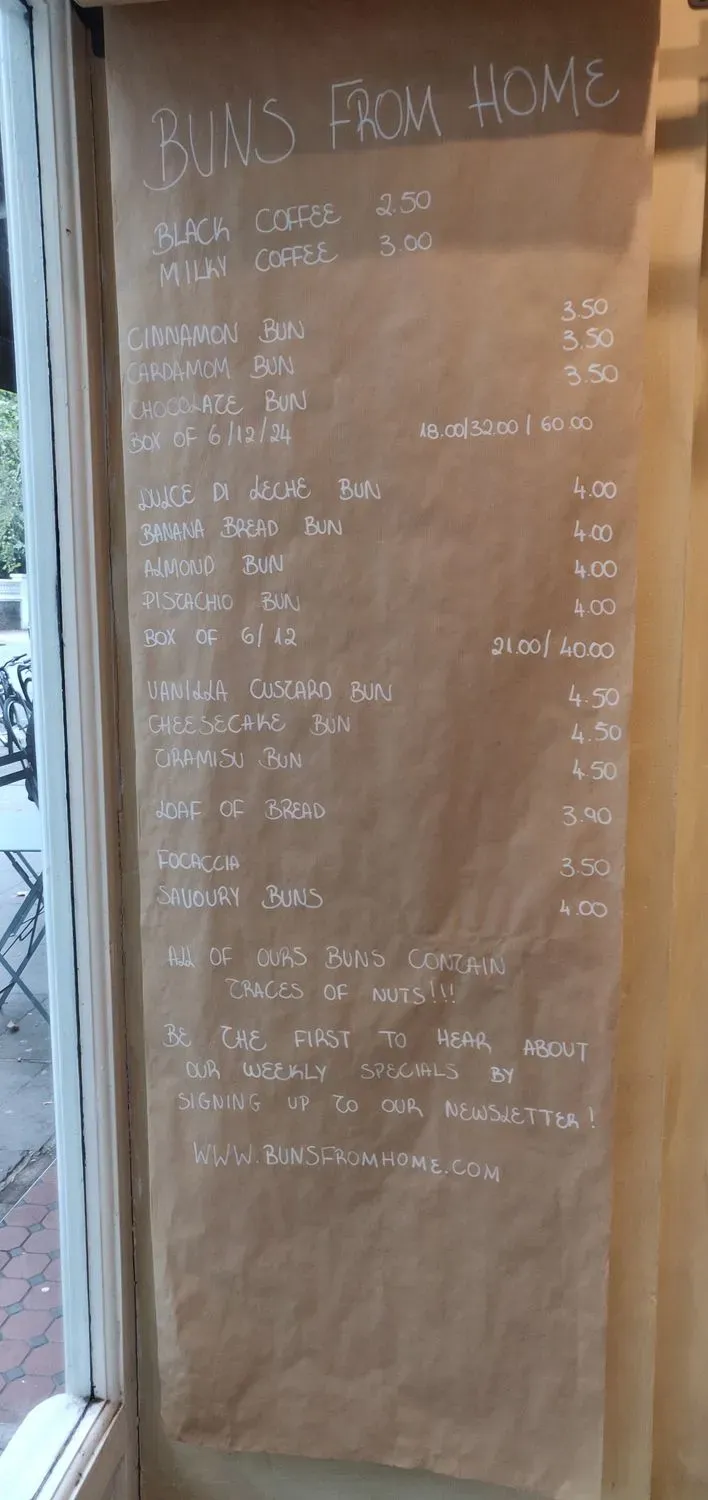 BUNS FROM HOME
BLACK COFFEE 2.50
MILKY COFFEE 3.00
CINNAMON BUN 3.50
CARDAMOM BUN 3.50
CHOCOLATE BUN 3.50
BOX OF 6/12/24 18.00/32.00/60.00
DULCE DI LECHE BUN 4.00
BANANA BREAD BUN 4.00
ALMOND BUN 4.00
PISTACHIO BUN 4.00
BOX OF 6/12 21.00/40.00
VANILLA CUSTARD BUN 4.50
CHEESECAKE BUN 4.50
TIRAMISU BUN 4.50
LOAF OF BREAD 3.90
FOCACCIA 3.50
SAVOURY BUNS 4.00
ALL OF OURS BUNS CONTAIN
TRACES OF NUTS!!!
BE THE FIRST TO HEAR ABOUT
OUR WEEKLY SPECIALS BY
SIGNING UP TO OUR NEWSLETTER!
WWW.BUNSFROMHOME.COM